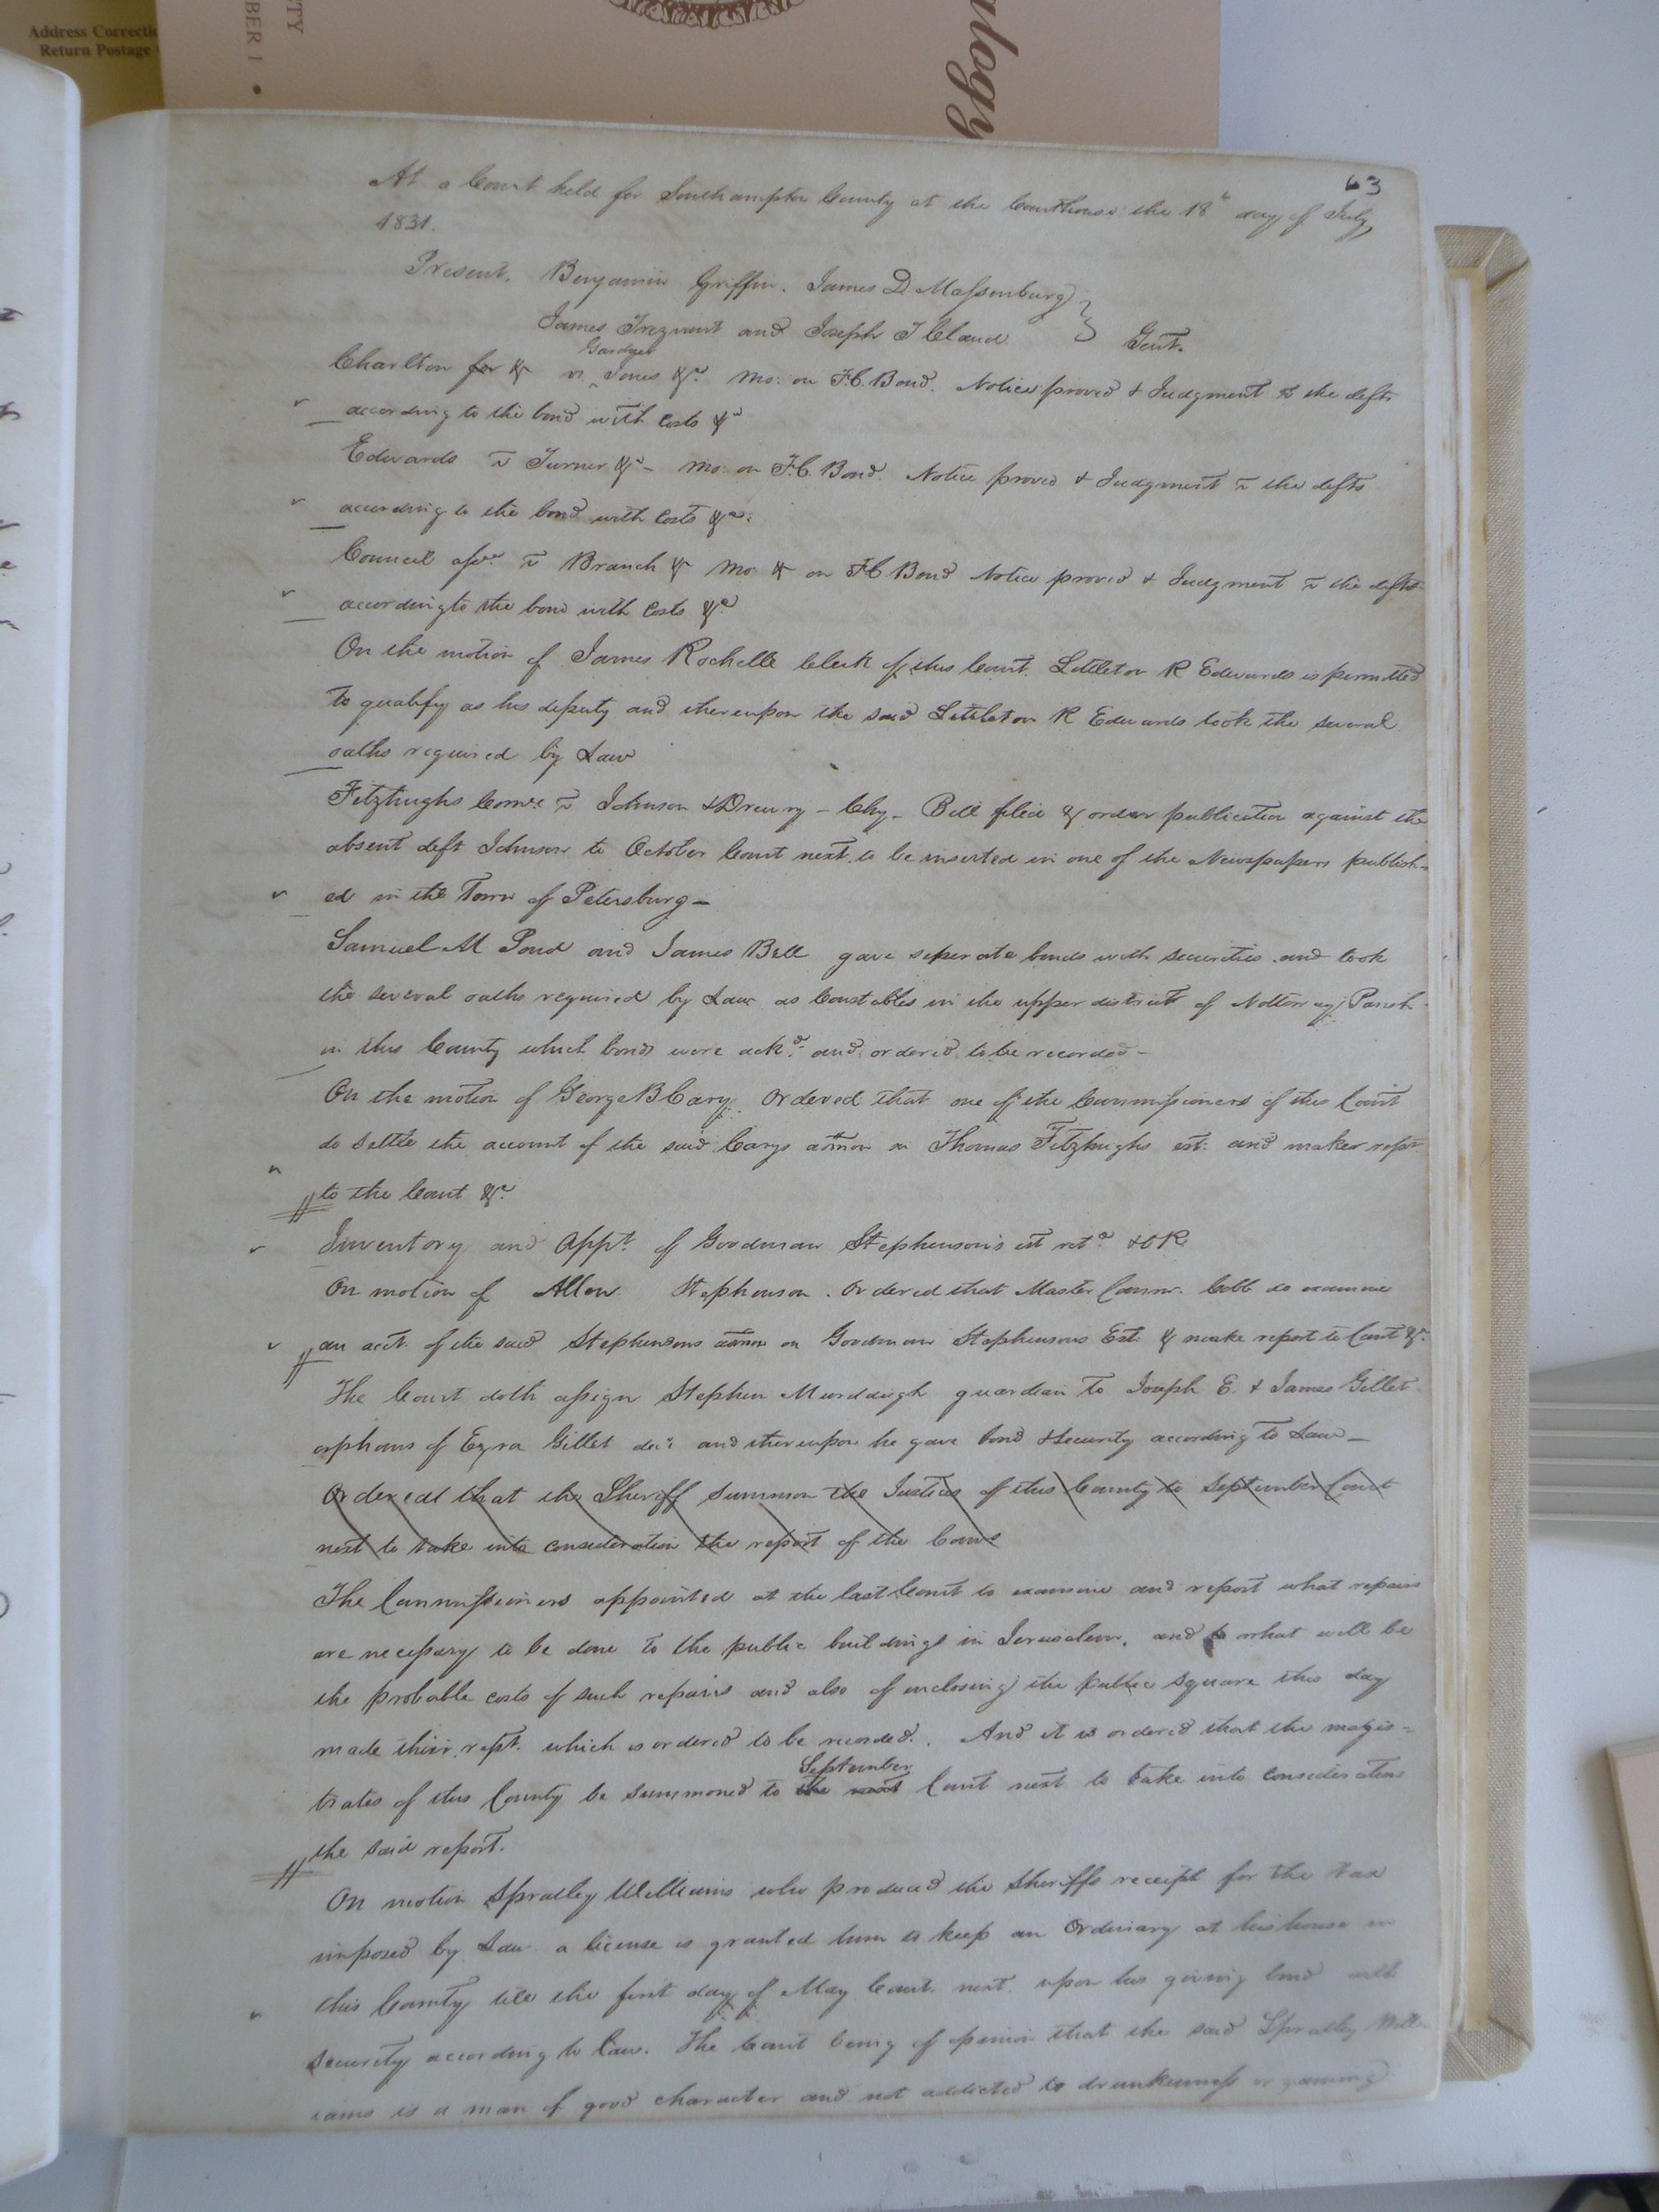 Address Correctio
Return Postage
TY
BER 1 •
alogy
63
At a Court held for Southampton County at the Courthouse the 18th day of July
1831.
Present, Benjamin Griffin, James D Massenburg
James Trezvant and Joseph T Claud } Gent.
Charlton for &c vs Gardner Jones &c. Mo: on F.C. Bond. Notice proved & Judgment vs the defts
according to the bond with costs &c
Edwards vs Turner &c - Mo: on F.C. Bond. Notice proved & Judgment vs the defts
according to the bond with costs &c:
Council assee. vs Branch &c Mo & on FC Bond Notice proved & Judgment vs the defts
according to the bond with costs &c
On the motion of James Rochelle Clerk of this Court. Littleton R Edwards is permitted
to qualify as his deputy and thereupon the said Littleton R Edwards took the several
oaths required by Law
Fitzhughs Comee vs Johnson & Drewry - Chy - Bill filed & order publication against the
absent deft Johnson to October Court next. to be inserted in one of the Newspapers publish-
ed in the Town of Petersburg -
Samuel M Pond and James Bell gave seperate bonds with securities and took
the several oaths required by Law as Constables in the upper district of Nottoway Parish
in this County which bonds were ackd. and ordered to be recorded -
On the motion of George B Cary. Ordered that one of the Commissioners of this Court
do settle the account of the said Carys admon on Thomas Fitzhughs est: and makes rept
to the Court &c.
Inventory and Appt. of Goodman Stephenson's est retd & OR
On motion of Allen Stephenson. Ordered that Master Commr. Cobb do examine
an acct. of the said Stephensons admon on Goodman Stephensons Est: & make report to Court &c.
The Court doth assign Stephen Murdaugh guardian to Joseph E. & James Gillet
orphans of Ezra Gillet decd and thereupon he gave bond & security according to Law -
Ordered that the Sheriff summon the Justices of this County to September Court
next to take into consideration the report of the Coms
The Commissioners appointed at the last Court to examine and report what repairs
are necessary to be done to the public buildings in Jerusalem, and to what will be
the probable costs of such repairs and also of inclosing the public square this day
made their rept. which is ordered to be recorded. And it is ordered that the magis-
trates of this County be summoned to the next September Court next to take into consideration
the said report.
On motion Spratley Williams who produced the Sheriffs receipt for the tax
imposed by Law a license is granted him to keep an Ordinary at his house in
this County till the first day of May Court next. upon his giving bond with
security according to Law. The Court being of opinion that the said Spratley Will
iams is a man of good character and not addicted to drunkenness or gaming